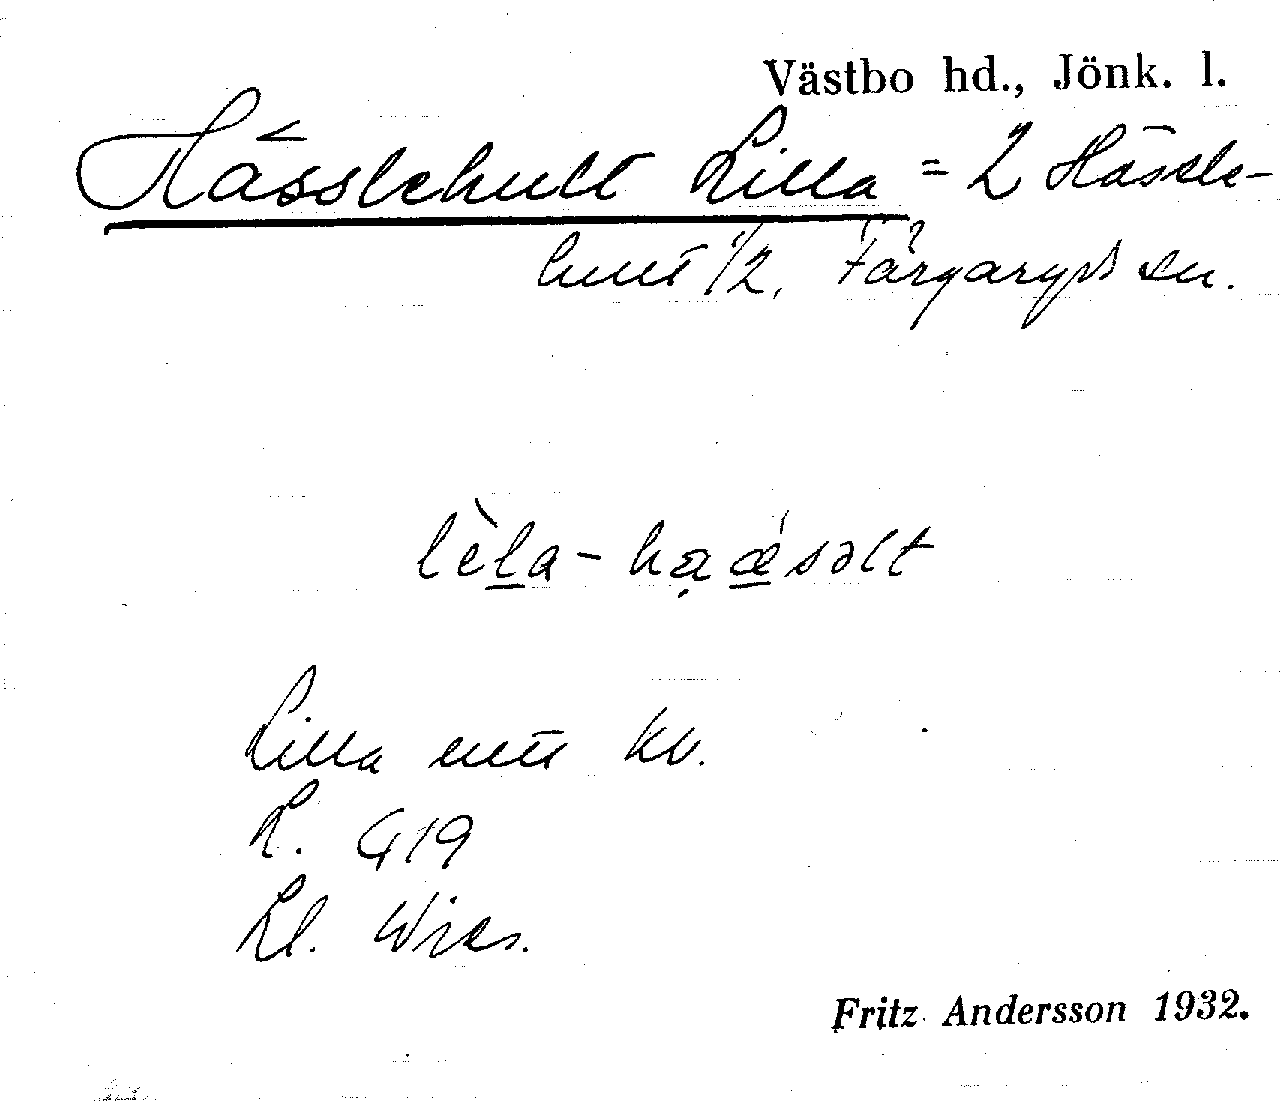 Västbo hd., Jönk. l.
Hässlehult Lilla = 2 Hässle-
hult 1/2, Färgaryds sn.
lèla - haǽsəlt
Lilla enl kv.
L. G19
Ll. Wies.
Fritz Andersson 1932.